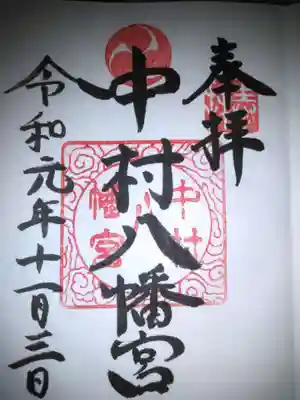 奉拝
中村八幡宮
令和元年十一月三日
中村
八
幡宮